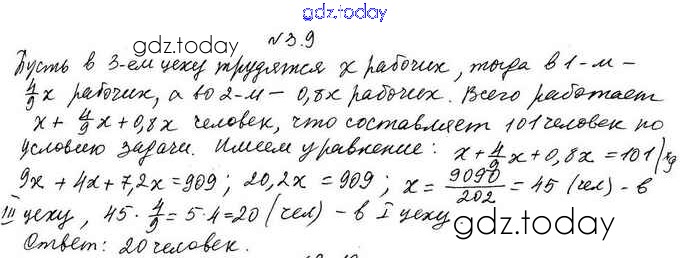 gdz.today
№3.9
gdz.today
Пусть в 3-ем цеху трудятся x рабочих, тогда в 1-м –
4/9x рабочих, а во 2-м – 0,8x рабочих. Всего работает
x + 4/9x + 0,8x человек, что составляет 101 человек по
условию задачи. Имеем уравнение: x + 4/9x + 0,8x = 101 |·9
9x + 4x + 7,2x = 909; 20,2x = 909; x = 9090/202 = 45 (чел) – в
III цеху, 45 · 4/9 = 5·4 = 20 (чел) – в I цеху
gdz.today
Ответ: 20 человек.